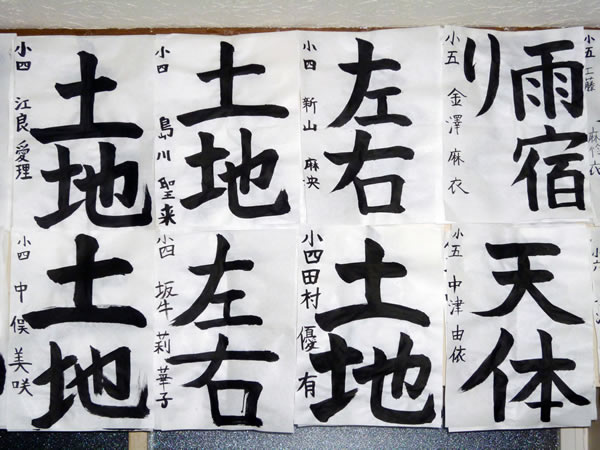 土地
小四 江良 愛理
土地
小四 島川 聖来
左右
小四 新山 麻央
雨宿り
小五 金澤 麻衣
小五 工藤
麻怜衣
土地
小四 中俣 美咲
左右
小四 坂牛 莉華子
土地
小四 田村 優有
天体
小五 中津 由依
小六